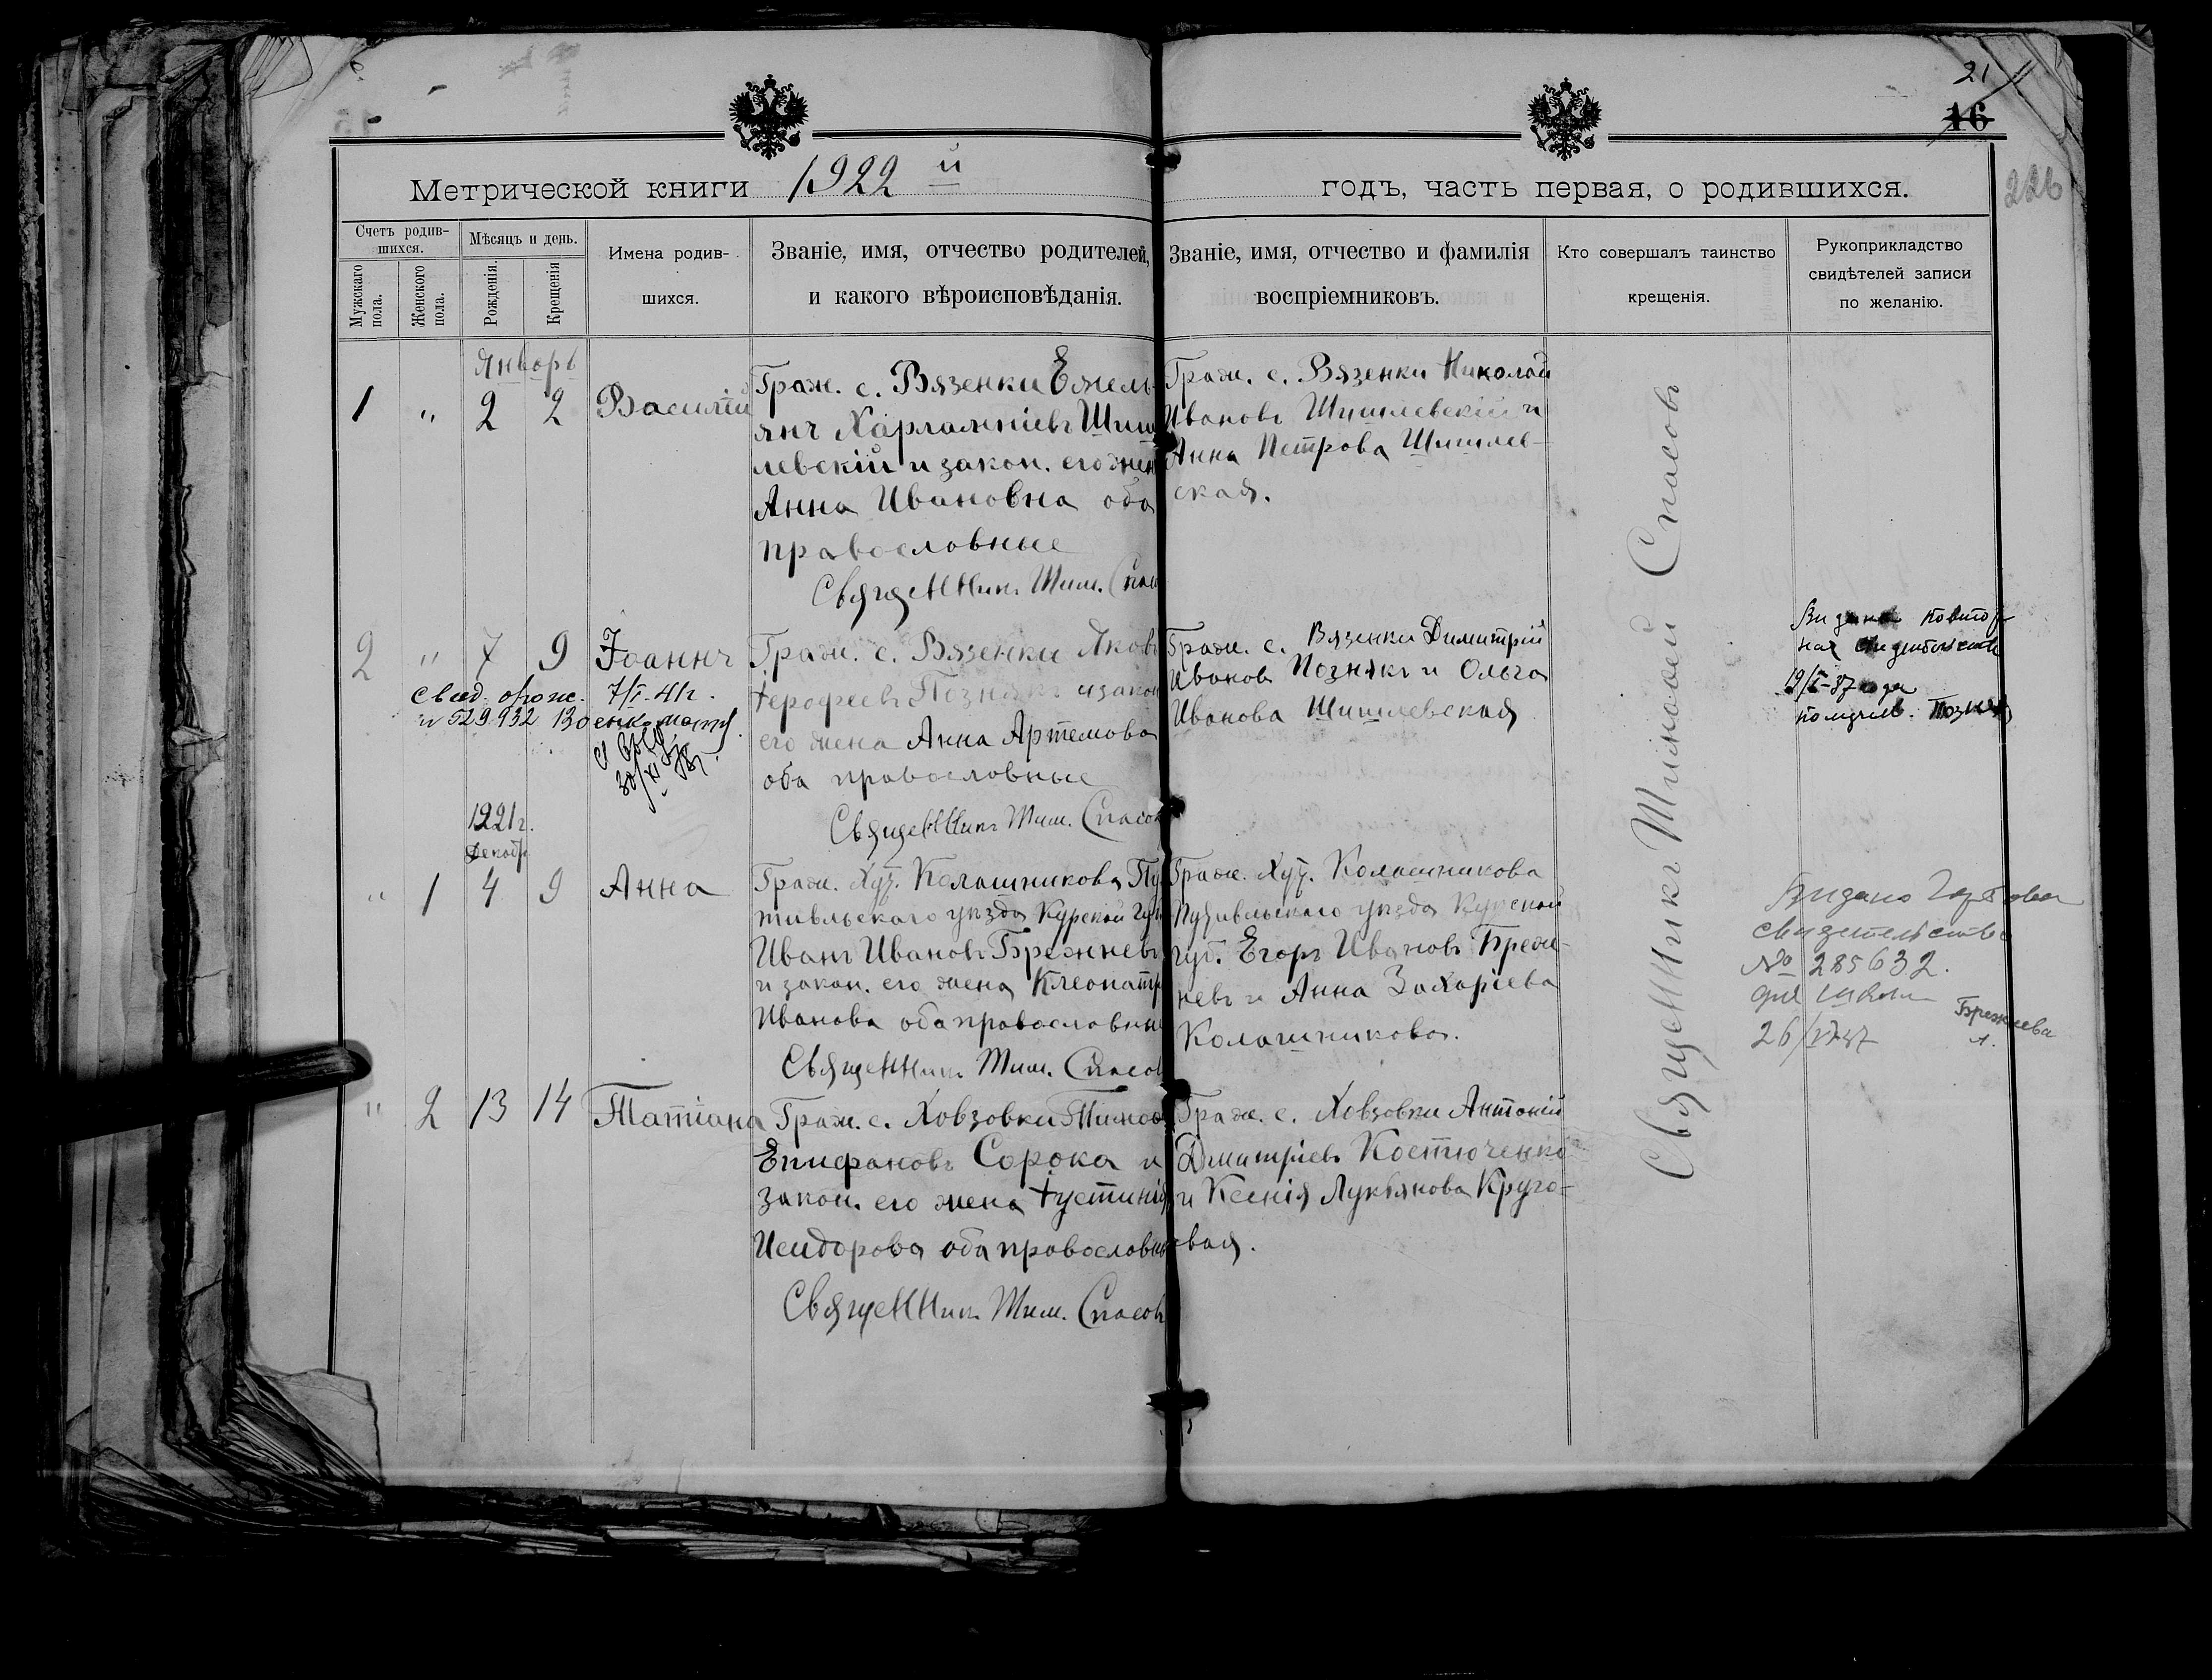 21
16
226
Метрической книги 1922 й годъ, часть первая, о родившихся.
Счетъ родив-
шихся.
Мужскаго
пола.
Женского
пола.
Мѣсяцъ и день.
Рожденія.
Крещенія
Имена родив-
шихся.
Званіе, имя, отчество родителей,
и какого вѣроисповѣданія.
Званіе, имя, отчество и фамилія
воспріемниковъ.
Кто совершалъ таинство
крещенія.
Рукоприкладство
свидѣтелей записи
по желанію.
Январь
1 " 2 2 Василій
Граж. с. Вязенки Емель-
янъ Харлампіевъ Шиш
левскій и закон. его жен
Анна Ивановна оба
православные
Священникъ Тим. Спас
Граж. с. Вязенки Николай
Ивановъ Шишлевскій и
Анна Петрова Шишлев-
ская.
2 " 7 9 Іоаннъ
Свид. о рож. 7/I-41г.
№ 529932
30/XI
Граж. с. Вязенки Яковъ
Іерофеевъ Познякъ и закон
его жена Анна Артемова
оба православные
Священникъ Тим. Спасов
Граж. с. Вязенки Димитрій
Ивановъ Познякъ и Ольга
Иванова Шишлевская
19/X-37 года
1921г.
Декабр
" 1 4 9 Анна
Граж. Хут. Колашникова Пу
тивльскаго уѣзда Курской Губ
Иванъ Ивановъ Брежневъ
и закон. его жена Клеопатр
Иванова оба православны
Священникъ Тим. Спасов
Граж. Хут. Колашникова
Путивльскаго уѣзда Курской
губ. Егоръ Ивановъ Бреж-
невъ и Анна Захаріева
Колашникова.
Видано
свидетельство
№ 285632.
для школи
Брежнева
" 2 13 14 Татіана
Граж. с. Ховзовки Тимоф
Епифановъ Сорока и
закон. его жена Іустинія
Исидорова оба православны
Священникъ Тим. Спасовъ
Граж. с. Ховзовки Антоній
Дмитріевъ Костюченко
и Ксенія Лукьянова Круго-
вая.
Священникъ Тимофей Спасовъ